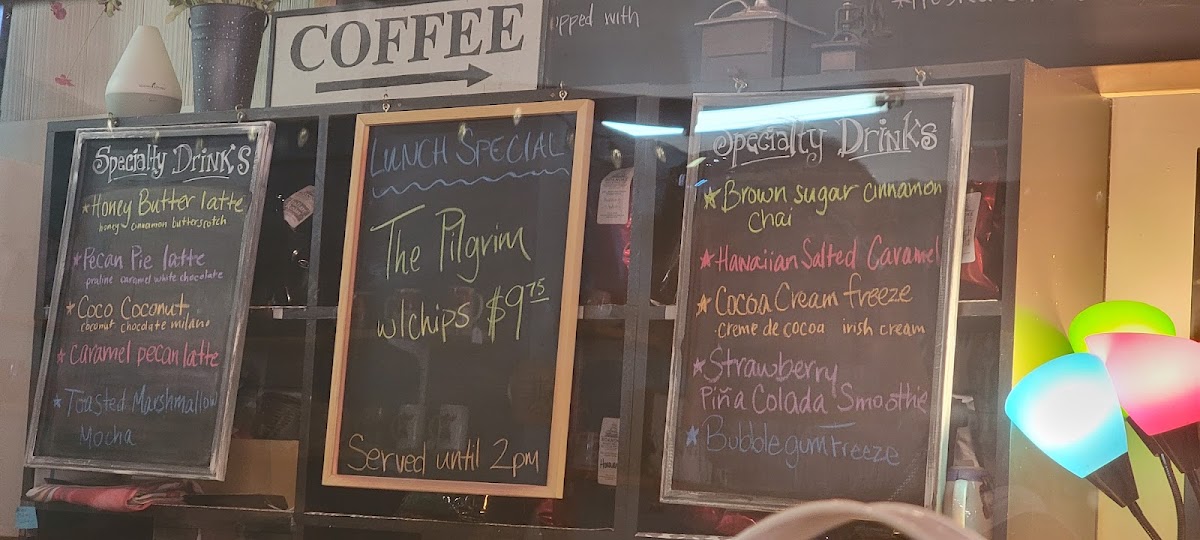 COFFEE
upped with
Specialty Drink's
Honey Butter latte
honey cinnamon butterscotch
Pecan Pie latte
praline caramel white chocolate
Coco Coconut
coconut chocolate milano
Caramel pecan latte
Toasted Marshmallow
Mocha
LUNCH SPECIAL
The Pilgrim
w/chips $9.75
Served until 2pm
Specialty Drink's
Brown sugar cinnamon
chai
Hawaiian Salted Caramel
Cocoa Cream freeze
creme de cocoa irish cream
Strawberry
Piña Colada Smoothie
Bubblegum Freeze